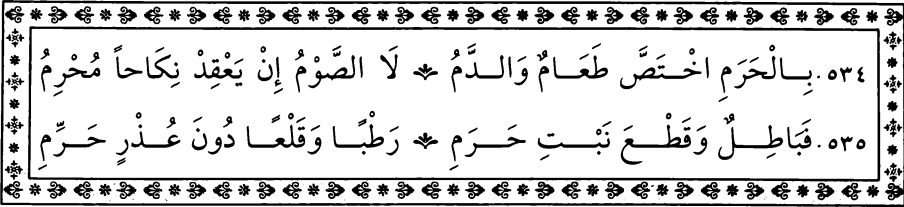 ٥٣٤. بِالْحَرَمِ اخْتَصَّ طَعَامٌ وَالدَّمُ لَا الصَّوْمُ إِنْ يَعْقِدْ نِكَاحاً مُحْرِمُ
٥٣٥. فَبَاطِلٌ وَقَطْعَ نَبْتِ حَرَمِ رَطْبًا وَقَلْعًا دُونَ عُذْرٍ حَرِّمِ